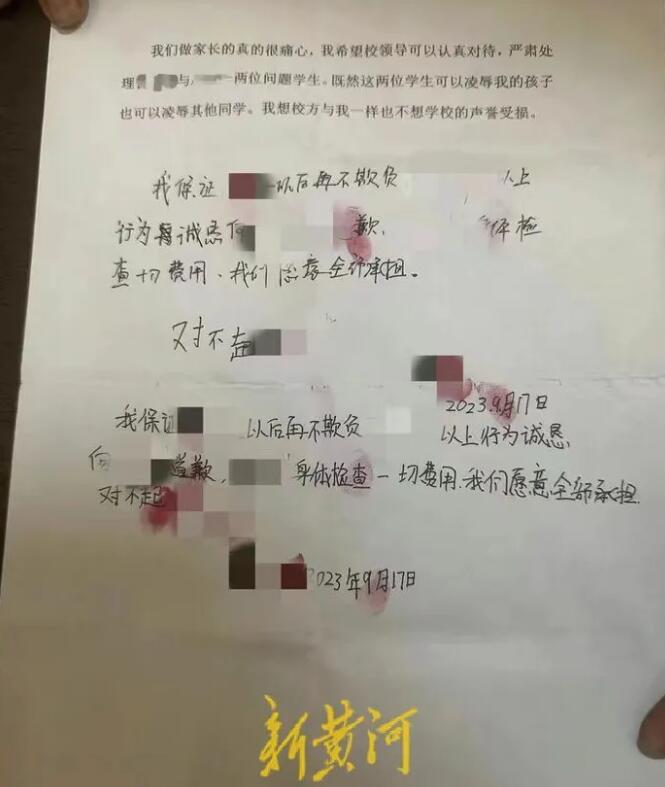 我们做家长的真的很痛心，我希望校领导可以认真对待，严肃处
理 与 一两位问题学生。既然这两位学生可以凌辱我的孩子
也可以凌辱其他同学。我想校方与我一样也不想学校的声誉受损。
我保证 以后再不欺负 以上
行为 诚恳向 歉, 体检
查一切费用、我们愿意全部承担。
对不起
2023.9月17日
我保证 以后再不欺负 以上行为诚恳
向 道歉, 身体检查一切费用.我们愿意全部承担.
对不起
2023年9月17日
新黄河